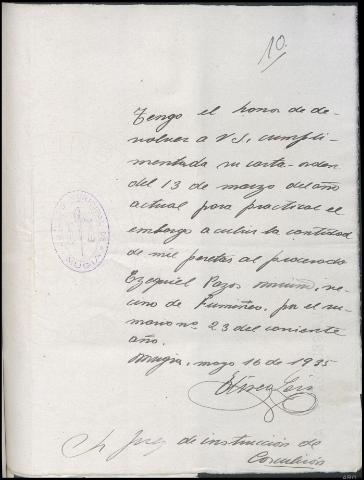 10
Tengo el honor de de-
volver a V.S. cumpli-
mentada su carta-orden
del 13 de marzo del año
actual para practicar el
embargo a cubrir la cantidad
de mil pesetas al procesado
Ezequiel Pazos ve-
cino de por el su-
mario nº 23 del corriente
año.
Mugia, mayo 16 de 1935
Sr Juez de instrucción de
Corcubión
MUGIA